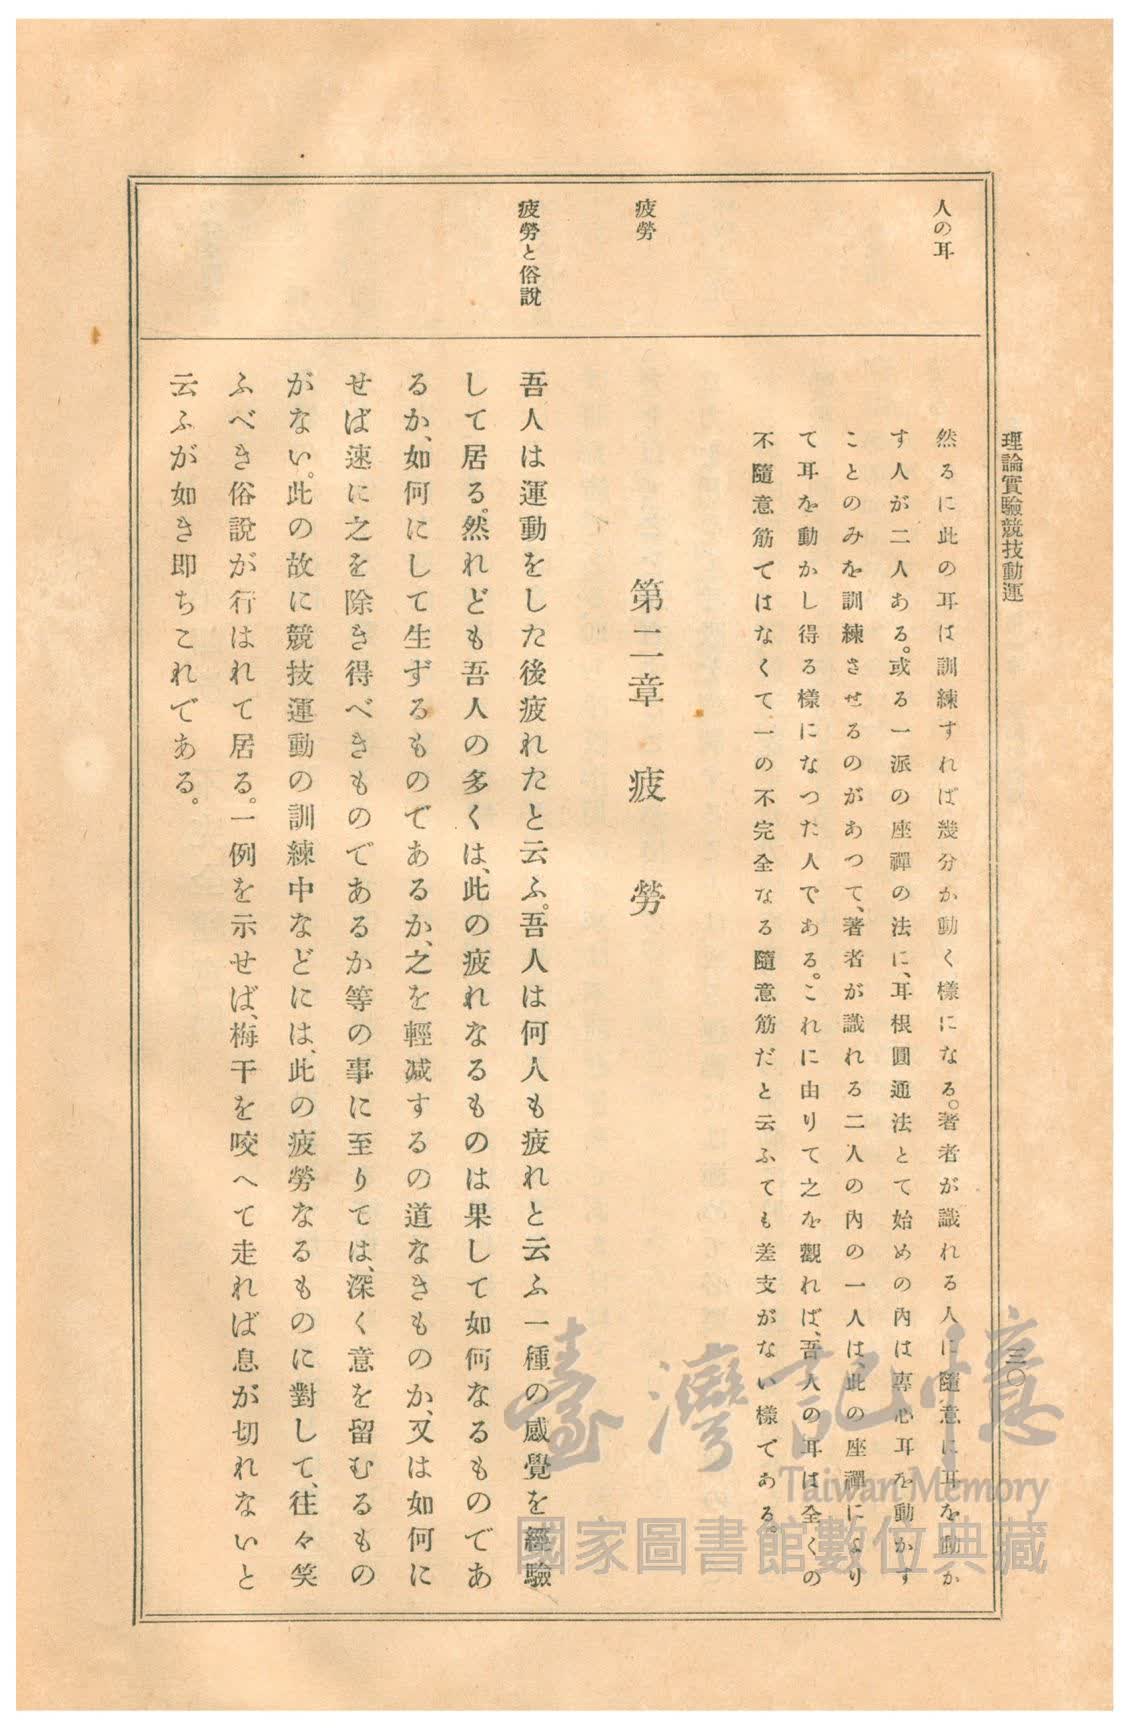 理論實驗競技動運
三〇
人の耳
然るに此の耳は訓練すれば幾分か動く樣になる。著者が識れる人に隨意に耳を動か
す人が二人ある。或る一派の座禪の法に、耳根圓通法とて始めの內は專心耳を動かす
ことのみを訓練させるのがあつて、著者が識れる二人の內の一人は、此の座禪により
て耳を動かし得る樣になつた人である。これに由りて之を觀れば、吾人の耳は全くの
不隨意筋ではなくて、一の不完全なる隨意筋だと云ふても差支がない樣である。
疲勞
第二章 疲勞
疲勞と俗說
吾人は運動をした後疲れたと云ふ。吾人は何人も疲れと云ふ一種の感覺を經驗
して居る。然れども吾人の多くは、此の疲れなるものは果して如何なるものであ
るか、如何にして生ずるものであるか、之を輕減するの道なきものか、又は如何に
せば速に之を除き得べきものであるか等の事に至りては、深く意を留むるもの
がない。此の故に競技運動の訓練中などには、此の疲勞なるものに對して、往々笑
ふべき俗說が行はれて居る。一例を示せば、梅干を咬へて走れば息が切れないと
云ふが如き卽ちこれである。
臺灣記憶
Taiwan Memory
國家圖書館數位典藏